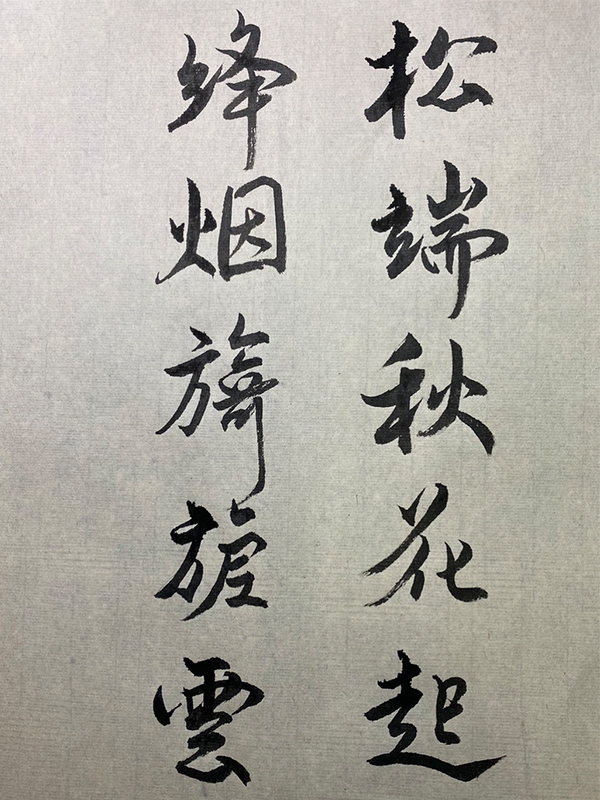 松端秋花起
绛烟旖旎雲